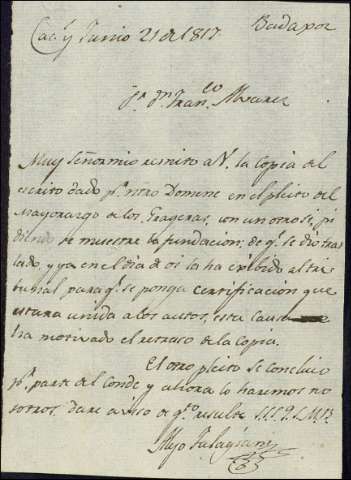 Cac.s y Junio 21 de 1817 Badajoz
S.r D.n Fran.co Alvarez
Muy Señor mio remito a V. la Copia del
escrito dado p.r ntro Domene en el pleito del
Mayorazgo de los Grageras, con un otro si, pi
diendo se muestre la fundacion; de q.e se dio tras
lado, y ya en el dia de oi la ha exibido al tri
bunal para q.e se ponga certificacion que
estara unida a los autos, esta causa
ha motivado el retraso de la copia.
El otro pleito se concluio
p.r parte del Conde y ahora lo haremos no
sotros, dare aviso de q.to resulte S.S.S.Q.S.M.B.